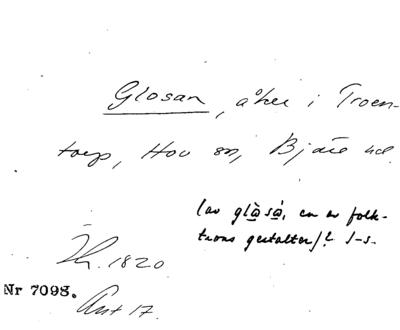 Glosan, åker i Troen-
torp, Hov sn, Bjäre hd.
(av glåså, en av folk-
trons gestalter)? S-s.
1820
Nr 7098.
Ant 17.